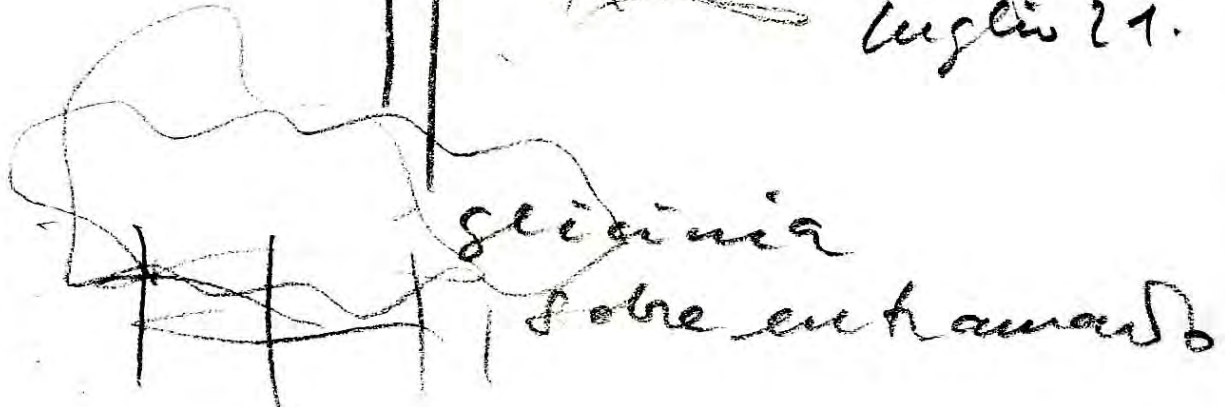 luglio 21.
glicinia
sobre entramado